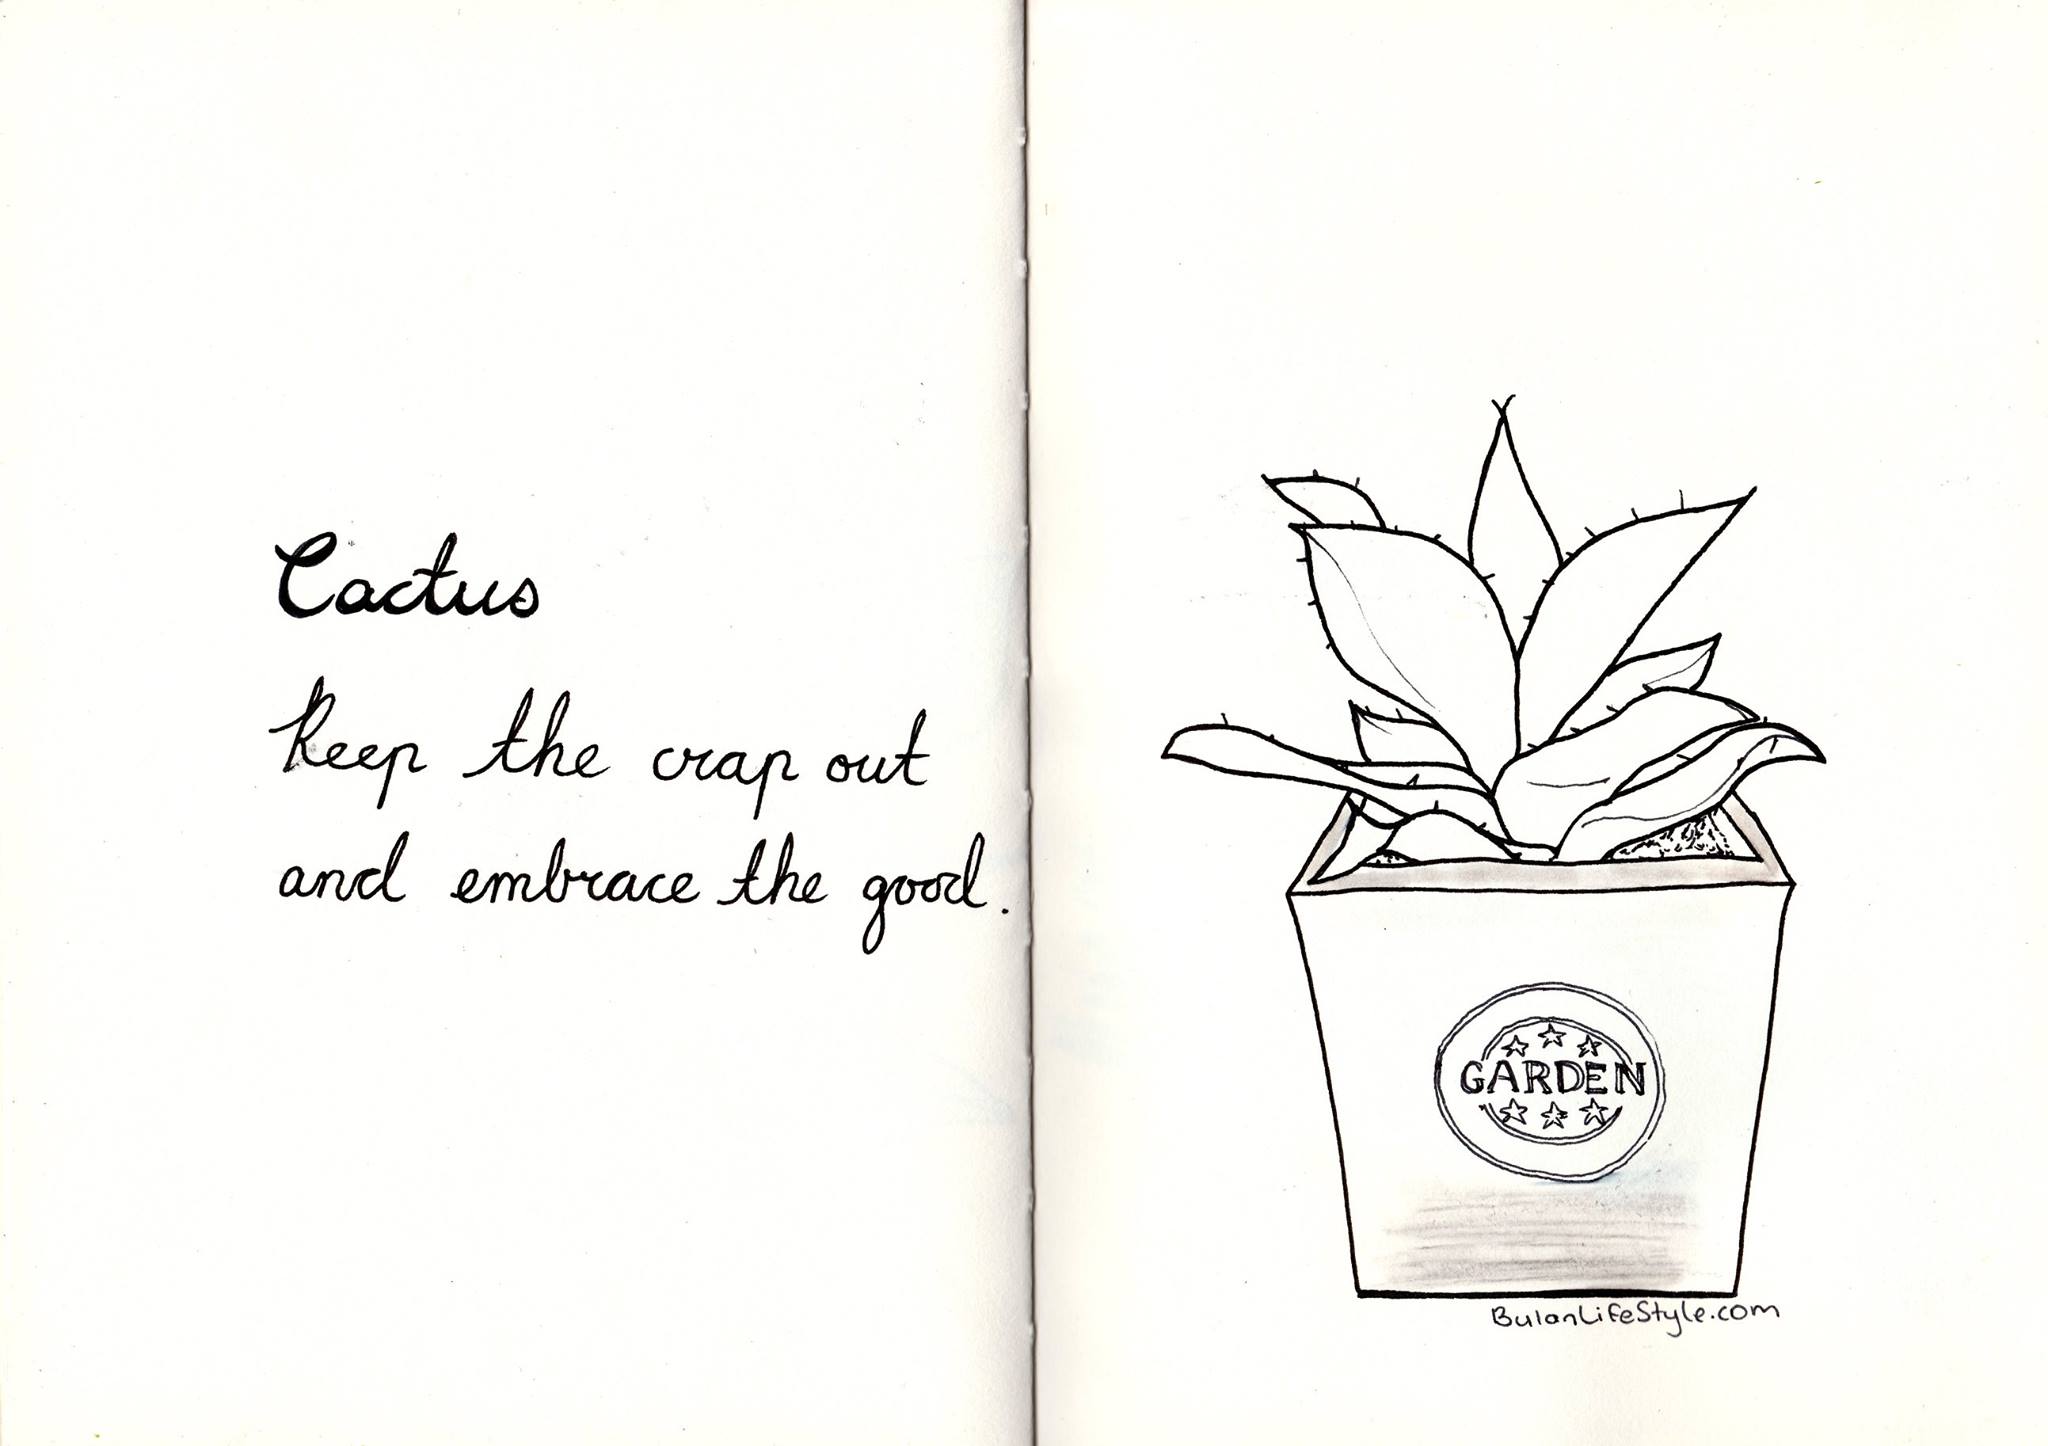 Cactus
Keep the crap out
and embrace the good.
GARDEN
BulanLifeStyle.com